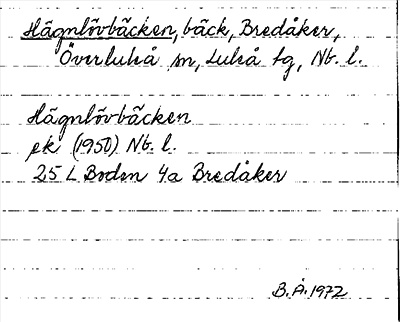 Hägnlövbäcken, bäck, Bredåker,
Överluleå sn, Luleå tg, Nb. l.
Hägnlövbäcken
ek (1950) Nb. l.
25 L Boden 4a Bredåker
B.Å. 1972